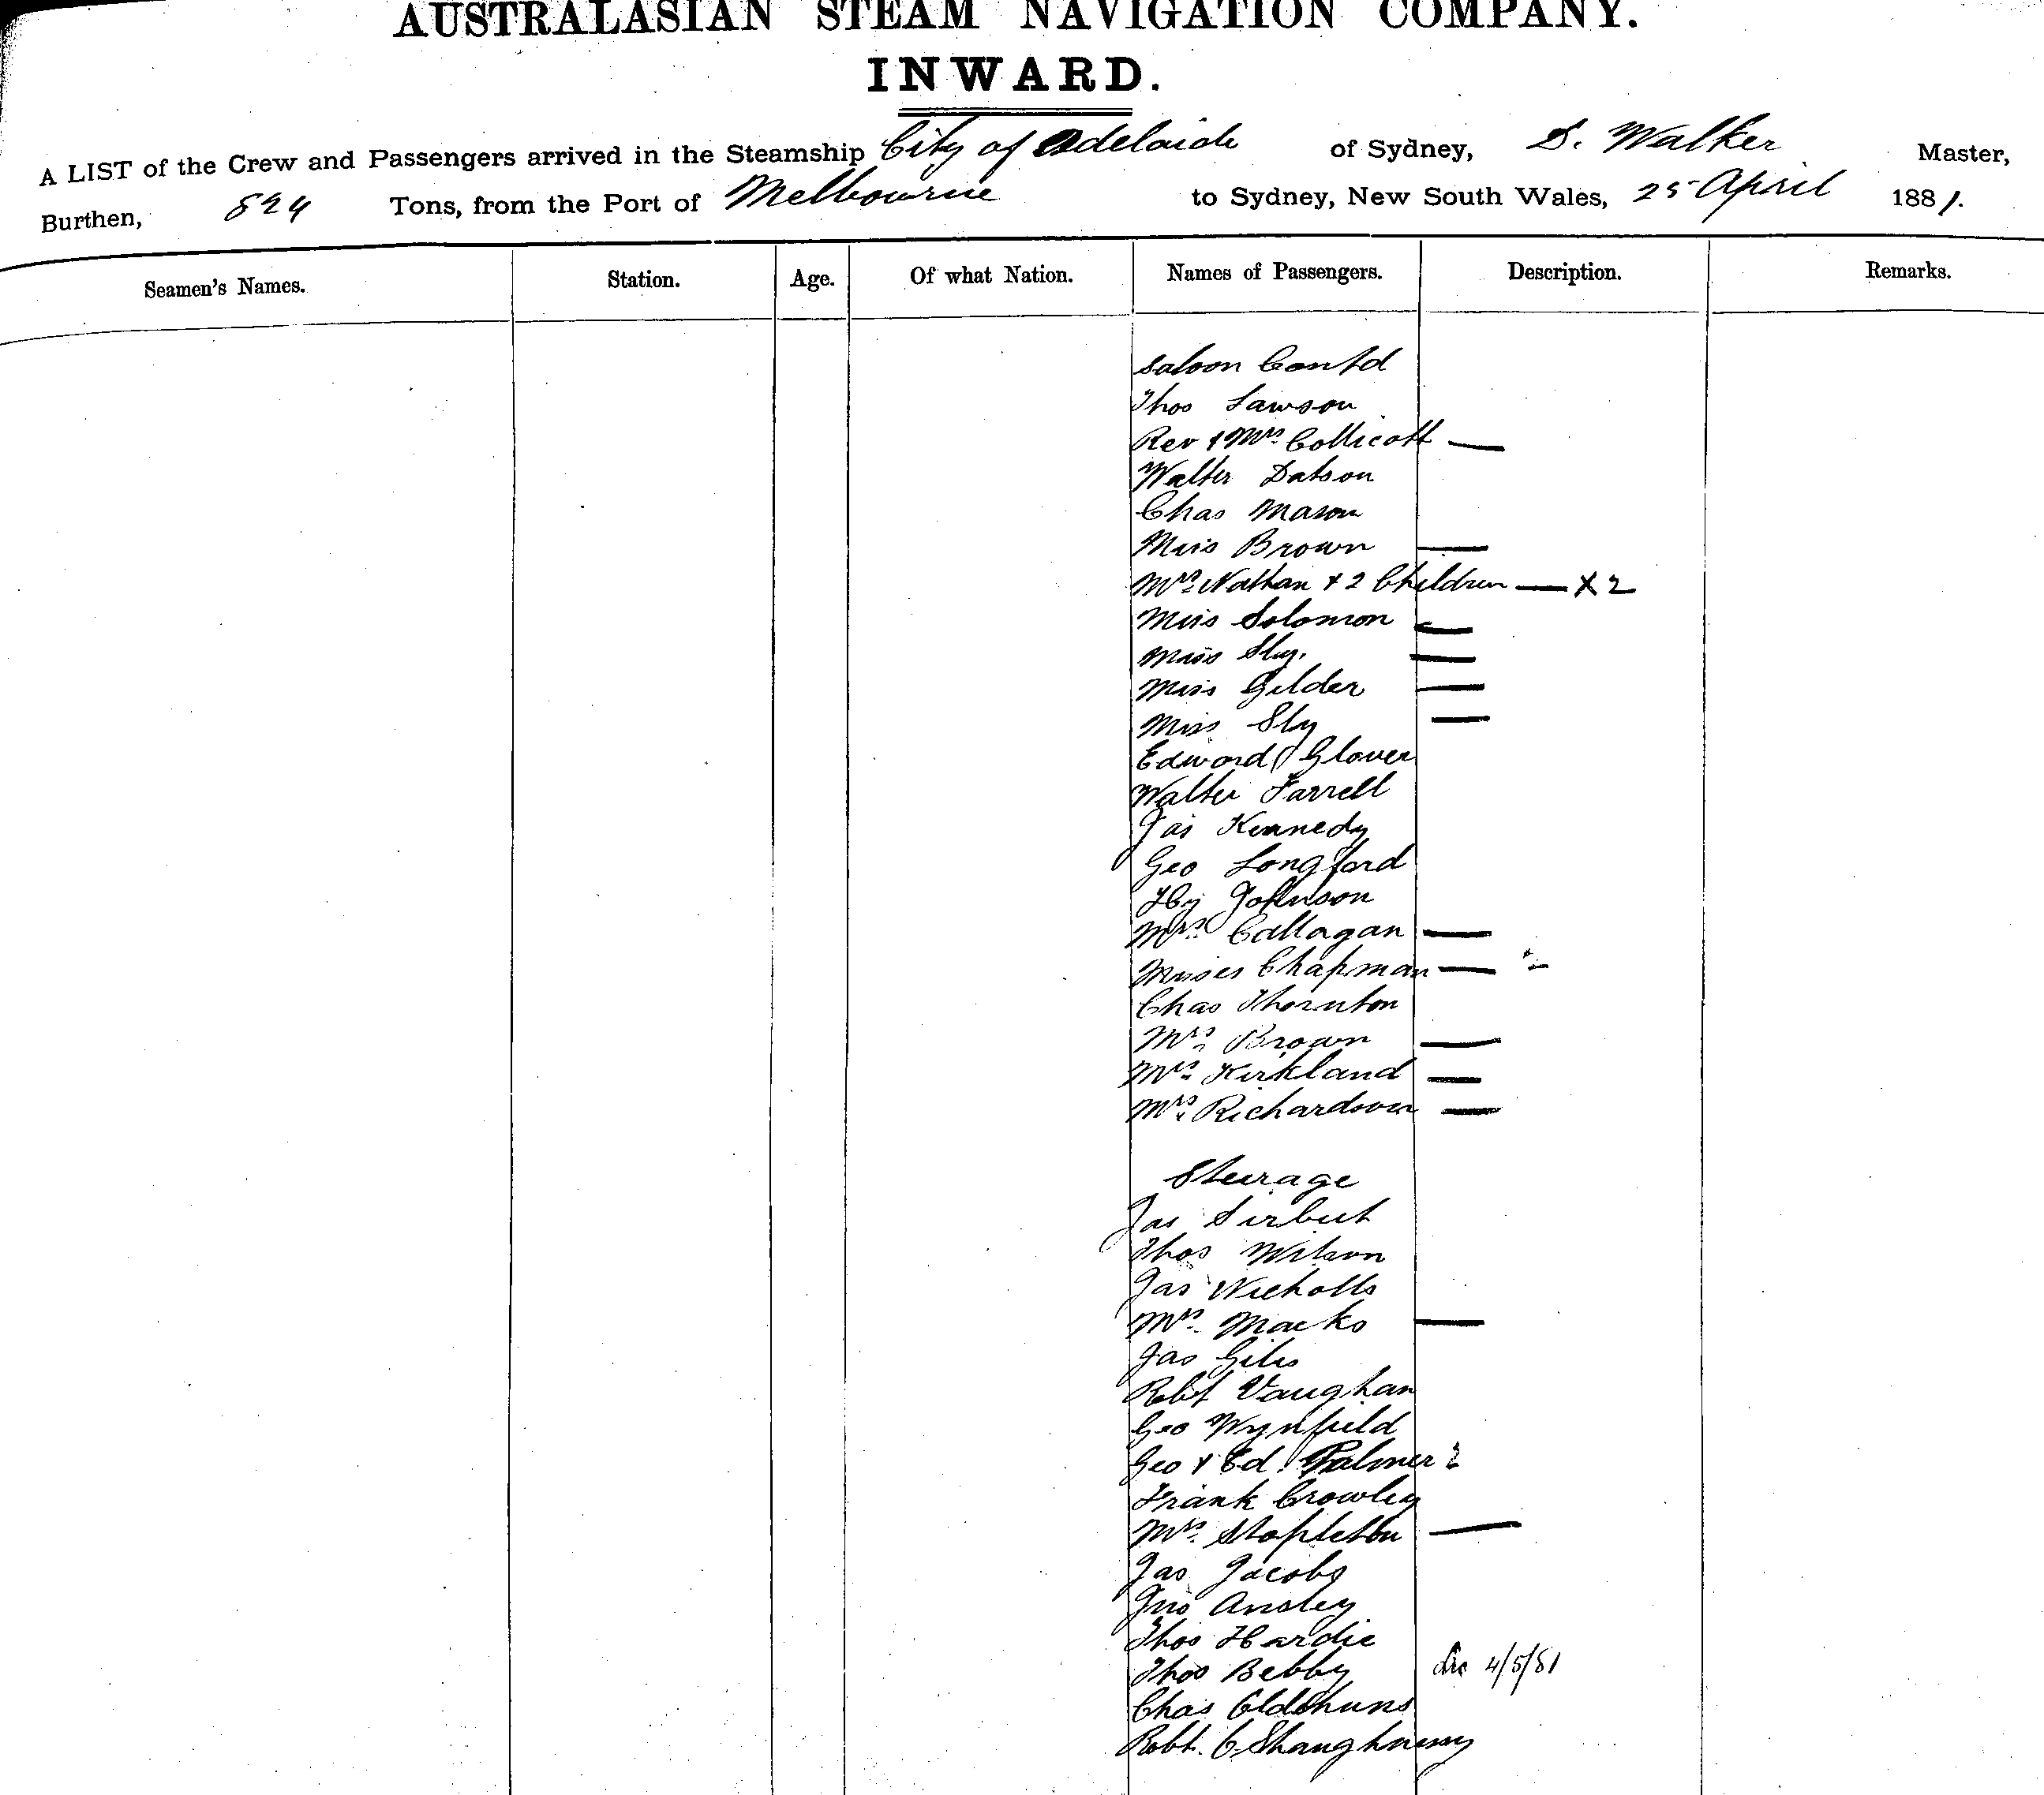 AUSTRALASIAN STEAM NAVIGATION COMPANY.
INWARD.
A LIST of the Crew and Passengers arrived in the Steamship City of Adelaide of Sydney, S. Walker Master,
Burthen, 824 Tons, from the Port of Melbourne to Sydney, New South Wales, 25 April 1881.
Seamen's Names. Station. Age. Of what Nation. Names of Passengers. Description. Remarks.
Saloon Contd
Thos Lawson
Rev & Mrs Collicott —
Walter Datson
Chas Mason
Miss Brown —
Mrs Nathan & 2 Children — X 2
Miss Solomon —
Miss Sly. —
Miss Gilder —
Miss Sly —
Edward Glover
Walter Farrell
Jas Kennedy
Geo Longford
Hy Johnson
Mrs Callagan —
Misses Chapman — 2
Chas Thornton
Mrs Brown —
Mrs Kirkland —
Mrs Richardson —
Steerage
Jas
Thos Wilson
Jas Nicholls
Mrs Marks —
Jas Giles
Robt Vaughan
Geo Wynfield
Geo & Ed Palmer 2
Frank Crowley
Mrs Stapleton —
Jas Jacobs
Jno Ansley
Thos Hardie
Thos Bebby 4/5/81
Chas
Robt. O'Shaughnessy